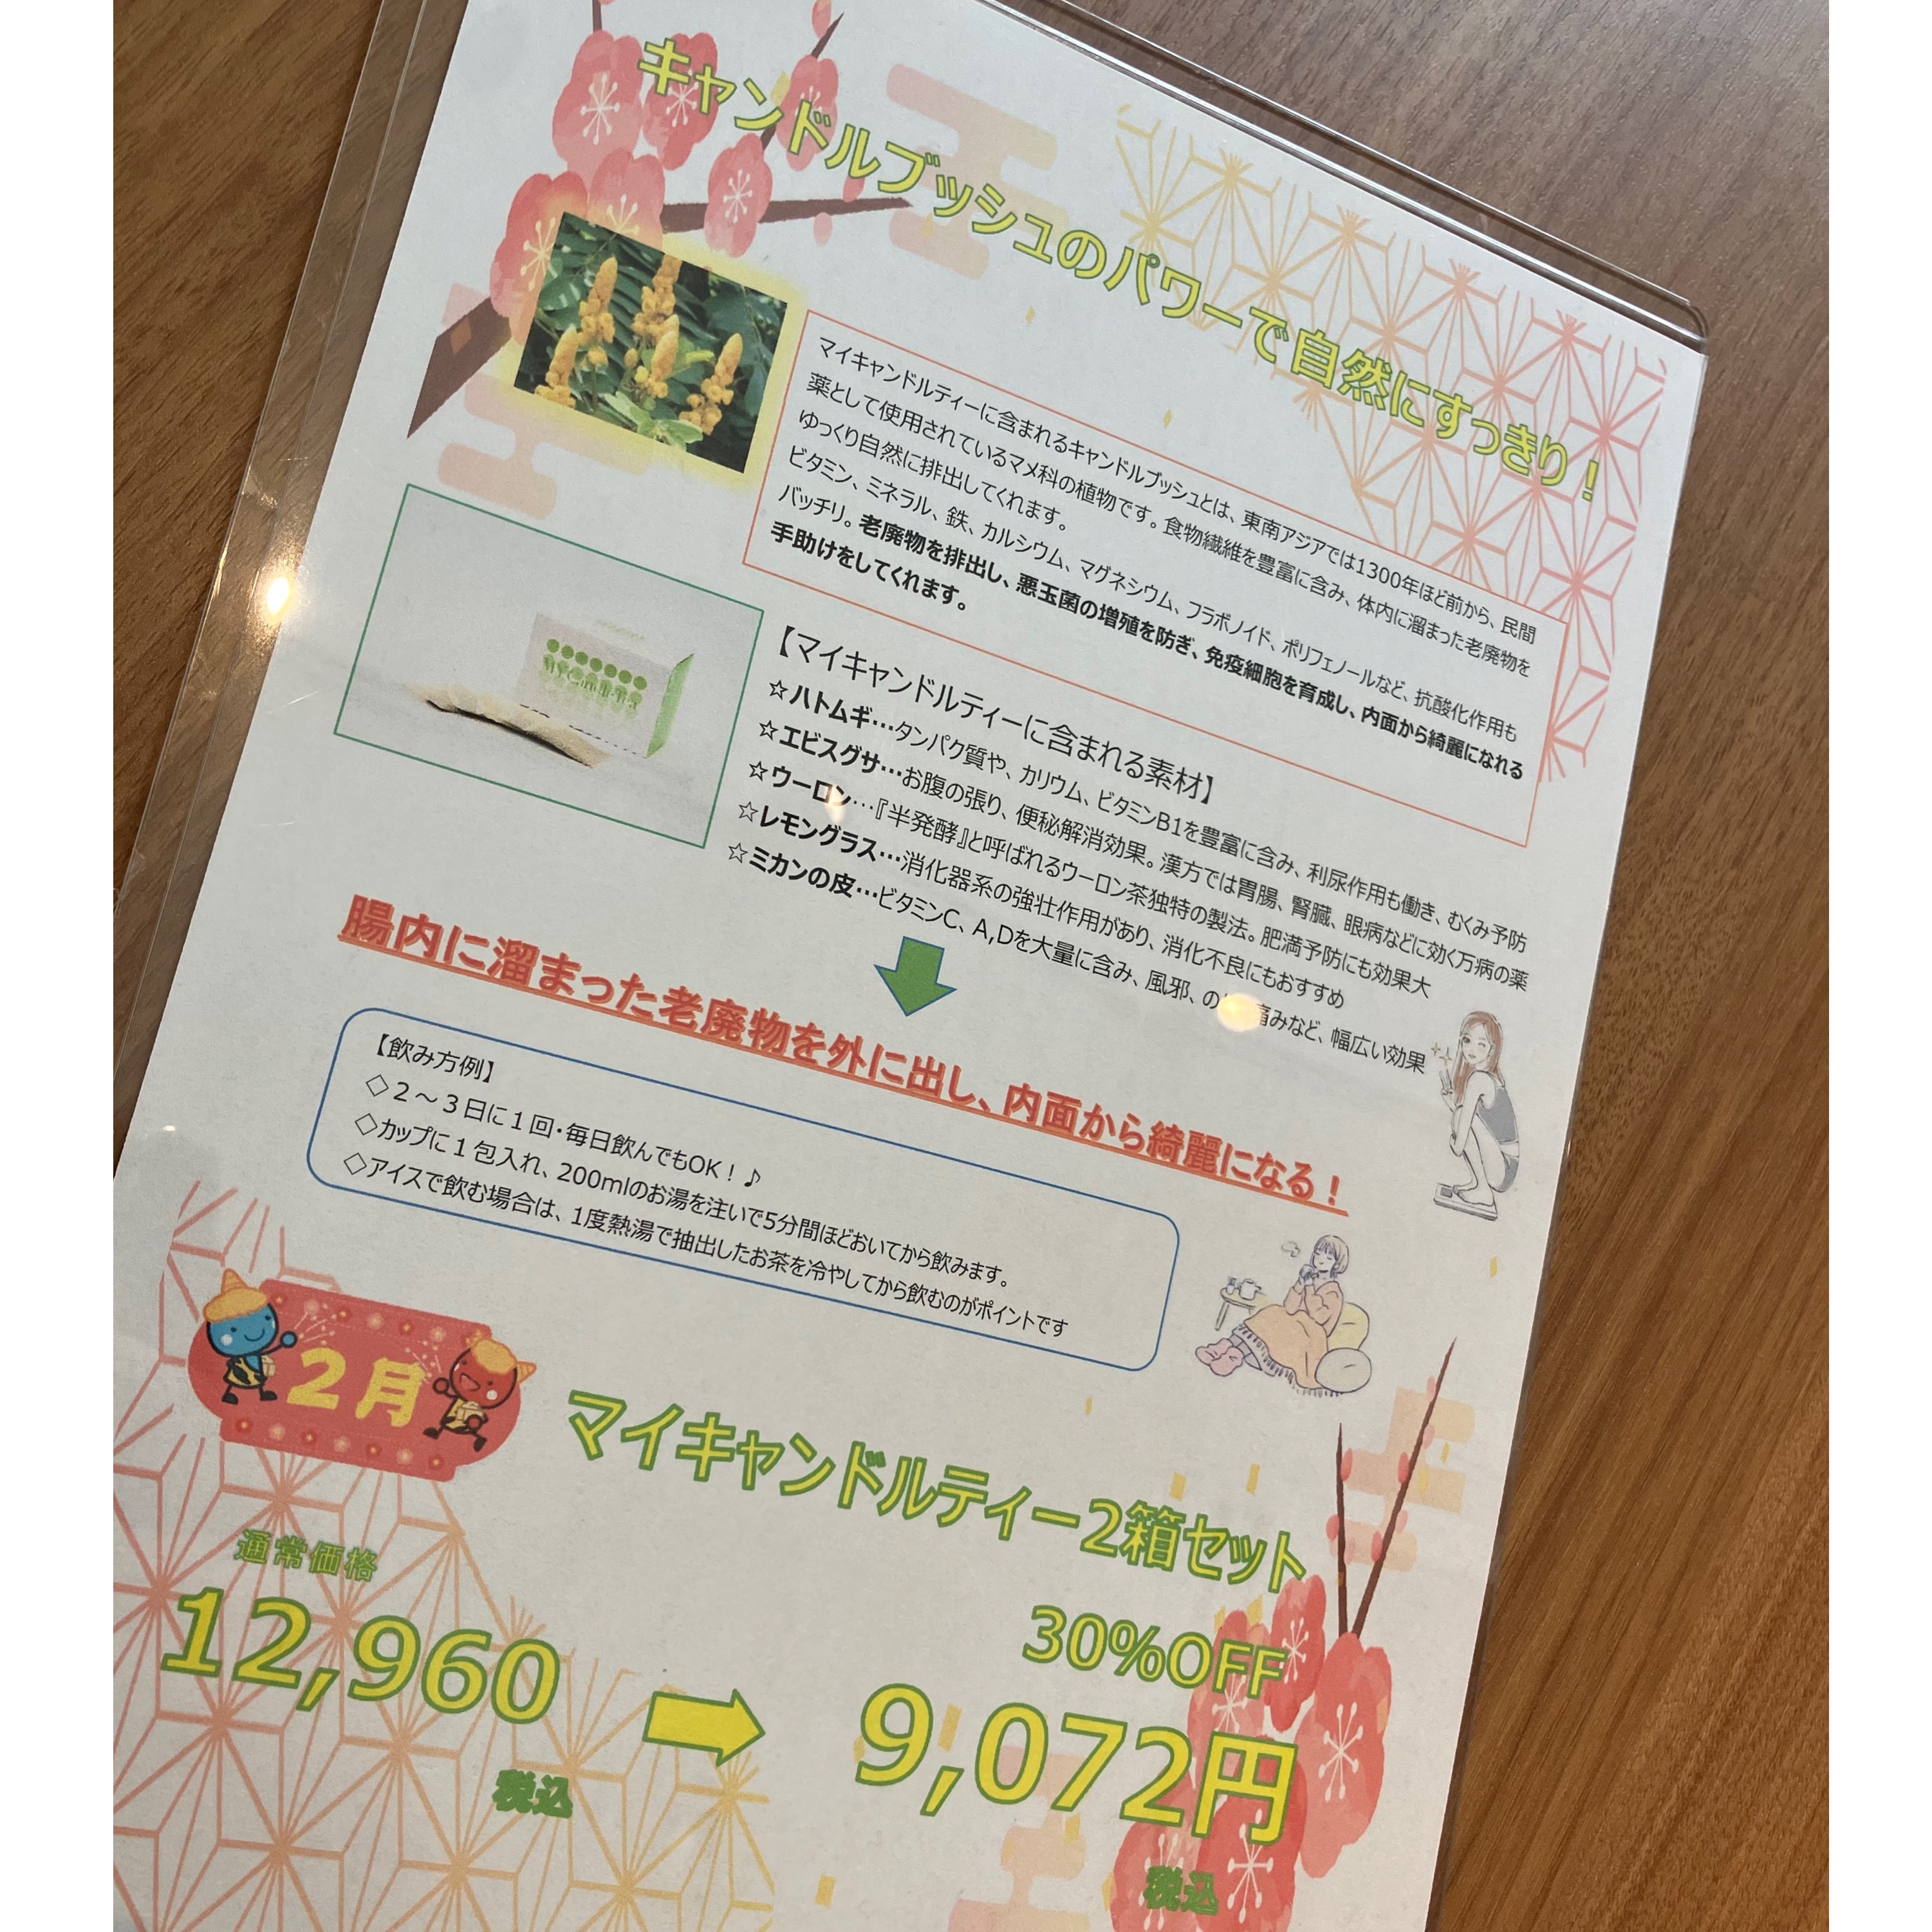 キャンドルブッシュのパワーで自然にすっきり！
マイキャンドルティーに含まれるキャンドルブッシュとは、東南アジアでは1300年ほど前から、民間
薬として使用されているマメ科の植物です。食物繊維を豊富に含み、体内に溜まった老廃物を
ゆっくり自然に排出してくれます。
ビタミン、ミネラル、鉄、カルシウム、マグネシウム、フラボノイド、ポリフェノールなど、抗酸化作用も
バッチリ。老廃物を排出し、悪玉菌の増殖を防ぎ、免疫細胞を育成し、内面から綺麗になれる
手助けをしてくれます。
【マイキャンドルティーに含まれる素材】
☆ハトムギ…タンパク質や、カリウム、ビタミンB1を豊富に含み、利尿作用も働き、むくみ予防
☆エビスグサ…お腹の張り、便秘解消効果。漢方では胃腸、腎臓、眼病などに効く万病の薬
☆ウーロン…『半発酵』と呼ばれるウーロン茶独特の製法。肥満予防にも効果大
☆レモングラス…消化器系の強壮作用があり、消化不良にもおすすめ
☆ミカンの皮…ビタミンC、A,Dを大量に含み、風邪、の 痛みなど、幅広い効果
腸内に溜まった老廃物を外に出し、内面から綺麗になる！
【飲み方例】
◇２～３日に１回・毎日飲んでもOK！♪
◇カップに１包入れ、200mlのお湯を注いで5分間ほどおいてから飲みます。
◇アイスで飲む場合は、1度熱湯で抽出したお茶を冷やしてから飲むのがポイントです
２月
マイキャンドルティー2箱セット
通常価格
12,960
税込
30%OFF
9,072円
税込